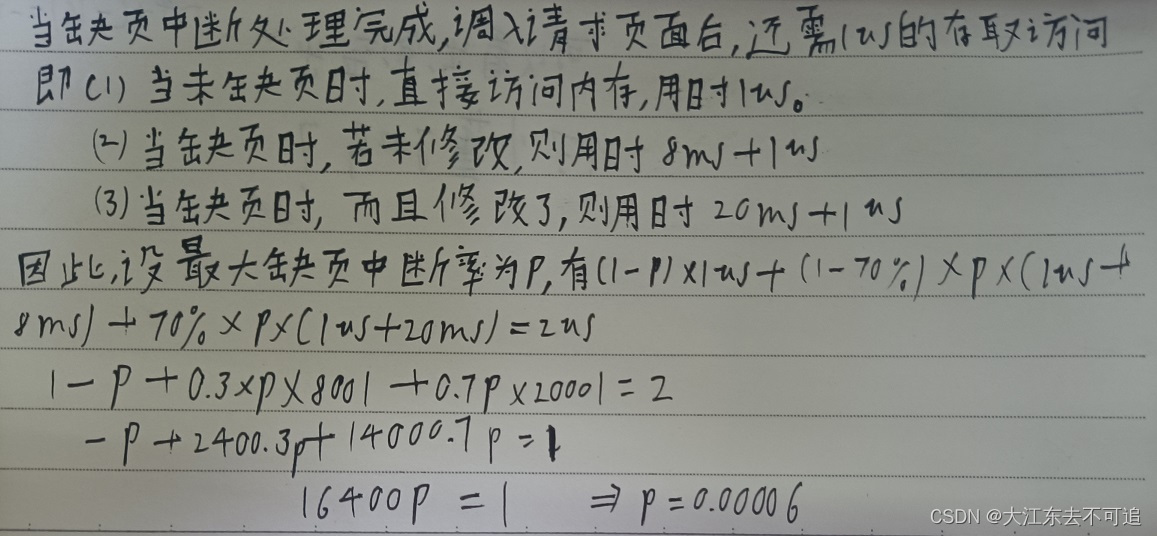 当缺页中断处理完成,调入请求页面后,还需1us的存取访问
即(1)当未缺页时,直接访问内存,用时1us。
(2)当缺页时,若未修改,则用时8ms+1us
(3)当缺页时,而且修改了,则用时20ms+1us
因此,设最大缺页中断率为P,有(1-P)×1us+(1-70%)×P×(1us+
8ms)+70%×P×(1us+20ms)=2us
1-P+0.3×P×8001+0.7P×20001=2
-P+2400.3P+14000.7P=1
16400P=1 ⇒ P=0.00006
CSDN @大江东去不可追